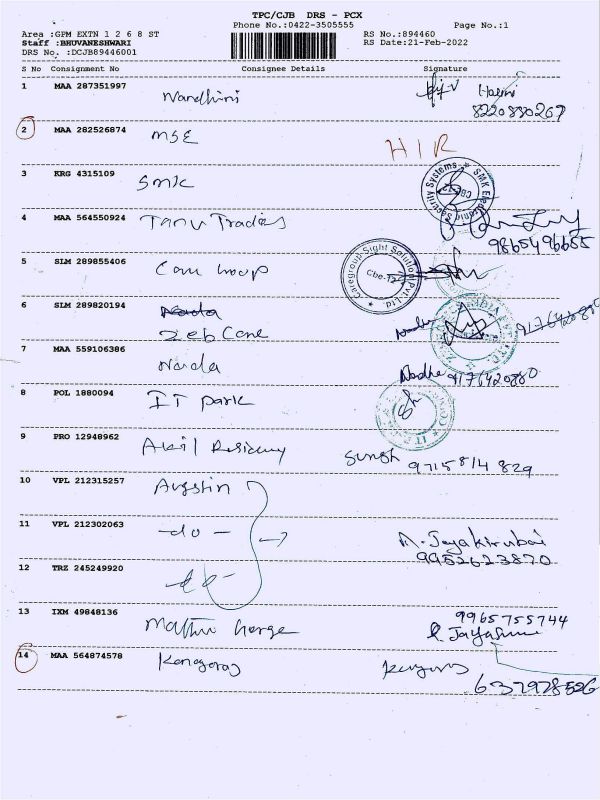 TPC/CJB DRS - PCX
Phone No.:0422-3505555 Page No.:1
Area :GPM EXTN 1 2 6 8 ST RS No.:894460
Staff :BHUVANESHWARI RS Date:21-Feb-2022
DRS No. :DCJB89446001
S No Consignment No Consignee Details Signature
1 MAA 287351997 Nandhini
8220830267
2 MAA 282526874 MSE HIR
3 KRG 4315109 SMK
SMK Electronic Security Systems CBE-12
4 MAA 564550924 Tanu Traders
9865496655
5 SLM 289855406 Care Group
Caregroup Sight Solution Pvt. Ltd. Cbe-12
6 SLM 289820194 Nada
Zeb Care
7 MAA 559106386 Nada
9176420880
8 POL 1880094 IT park
9 PRO 12948962 Akil Residency
Sunsh 9715814829
10 VPL 212315257 Augstin
11 VPL 212302063 -do-
A. Jayakirubai
9952623870
12 TRZ 245249920 -do-
13 IXM 49848136 Mathu George
9965755744
14 MAA 564874578 Kangaroos
637978526